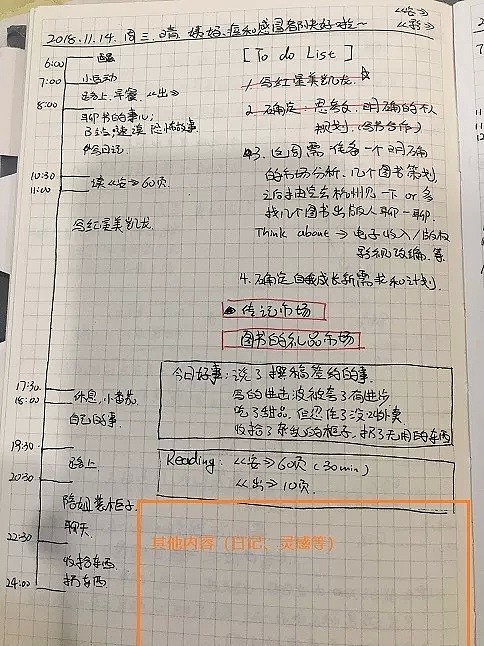 2018.11.14. 周三 晴 姨妈、痘和感冒都快好啦~
《容》
《彩》
6:00 醒
7:00 小运动
8:00 路上、早餐、《出》
聊书的事儿；
写日记
10:30
11:00 读《容》60页
写红星美凯龙
17:30
18:00 休息，小番茄
自己的事
19:30
路上
20:30
陪姐装柜子
聊天
22:30
收拾东西
扔东西
24:00
[To do List]
1. 写红星美凯龙.
2. 确定：思考好，明确的个人
规划.(含书合作)
3. 这周需准备一个明确
的市场分析、几个图书策划,
之后去杭州见一下 or 多
找几个图书出版人聊一聊.
Think about → 电子收入/版权
影视改编.等
4. 确定自我成长新需求和计划.
传记市场
图书的礼品市场
今日好事：说了撰稿签约的事.
写的也没被夸了有进步
吃了甜品，但忍住了没吃外卖
收拾了杂乱的柜子，扔了无用的东西
Reading: 《容》60页(30min)
《出》10页.
其他内容（日记、灵感等）